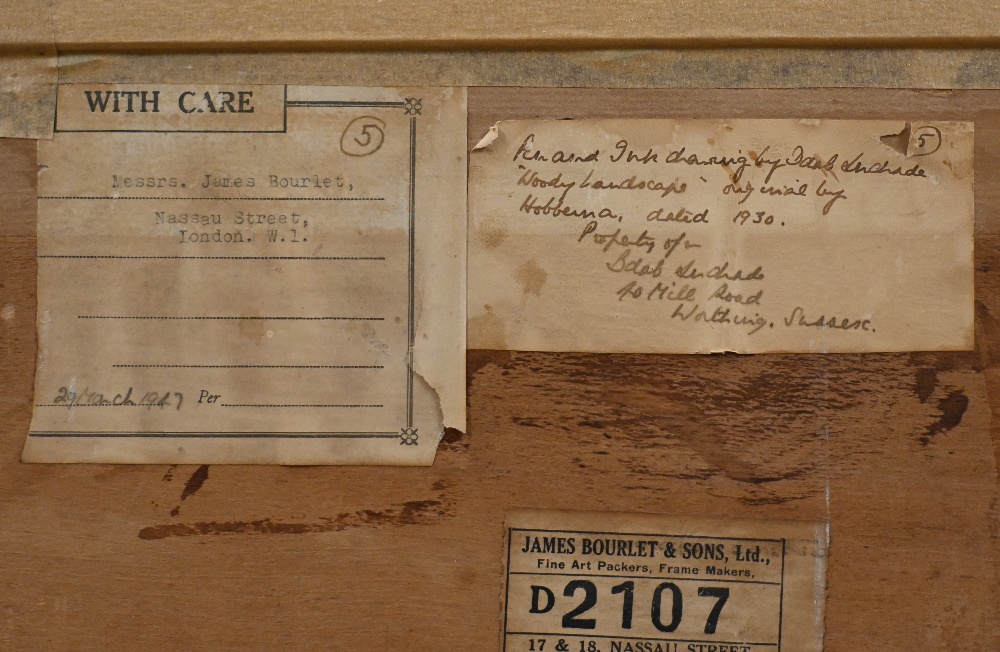 WITH CARE
5
Messrs. James Bourlet,
Nassau Street,
London. W.1.
29 March 1947 Per
5
Pen and Ink drawing by Idab Andrade
"Woody Landscape" original by
Hobbema, dated 1930.
Property of:-
Idab Andrade
40 Mill Road
Worthing. Sussex.
JAMES BOURLET & SONS, Ltd.,
Fine Art Packers, Frame Makers,
D2107
17 & 18, NASSAU STREET